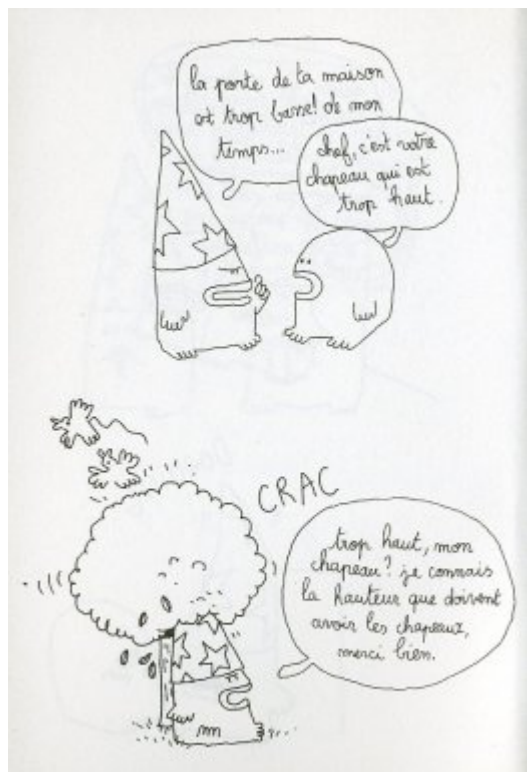 la porte de ta maison
est trop basse! de mon
temps...
chef, c'est votre
chapeau qui est
trop haut.
CRAC
trop haut, mon
chapeau? je connais
la hauteur que doivent
avoir les chapeaux,
merci bien.